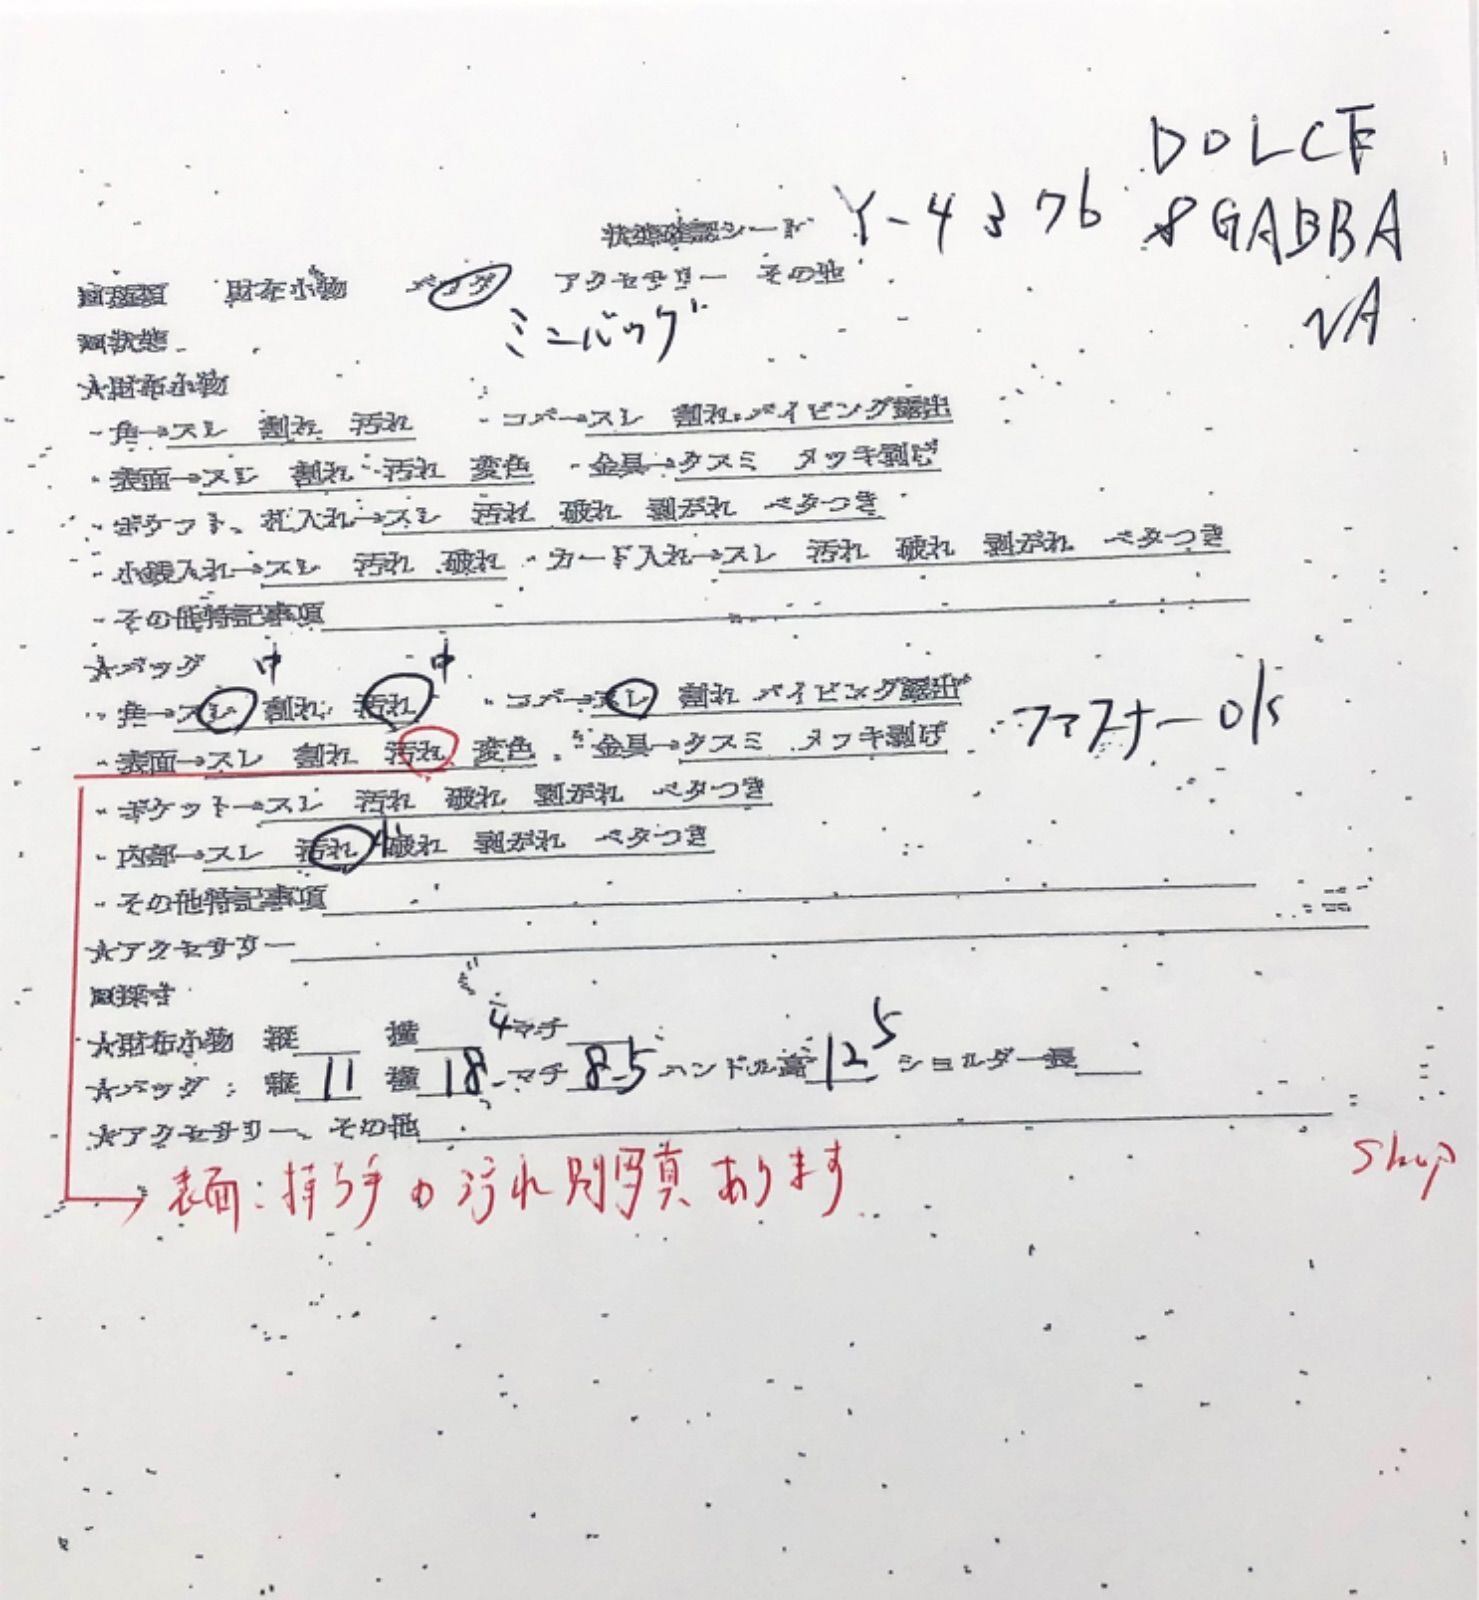 DOLCE
状態確認シート Y-4376 &GABBA
NA
■種類 財布小物 バッグ アクセサリー その他
■状態 ミニバッグ
★財布小物
・角→スレ 割れ 汚れ ・コバ→スレ 割れ パイピング露出
・表面→スレ 割れ 汚れ 変色 ・金具→クスミ メッキ剥げ
・ポケット、札入れ→スレ 汚れ 破れ 剥がれ ベタつき
・小銭入れ→スレ 汚れ 破れ ・カード入れ→スレ 汚れ 破れ 剥がれ ベタつき
・その他特記事項
★バッグ 中 中
・角→スレ 割れ 汚れ ・コバ→スレ 割れ パイピング露出 ファスナーO/S
・表面→スレ 割れ 汚れ 変色 ・金具→クスミ メッキ剥げ
・ポケット→スレ 汚れ 破れ 剥がれ ベタつき
・内部→スレ 汚れ 小 破れ 剥がれ ベタつき
・その他特記事項
★アクセサリー
■採寸
★財布小物 縦 横 マチ
★バッグ: 縦 11 横 18 マチ 8.5 ハンドル高 12 5 ショルダー長
★アクセサリー、その他
Shop
表面:持ち手の汚れ別写真あります